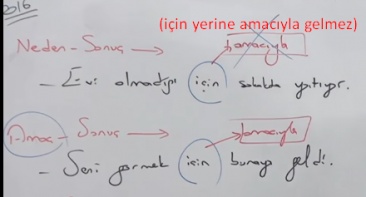 2016
(için yerine amacıyla gelmez)
Neden - Sonuç → amacıyla
- Evi olmadığı için sokakta yatıyor.
Amaç - Sonuç → amacıyla
- Seni görmek için buraya geldi.